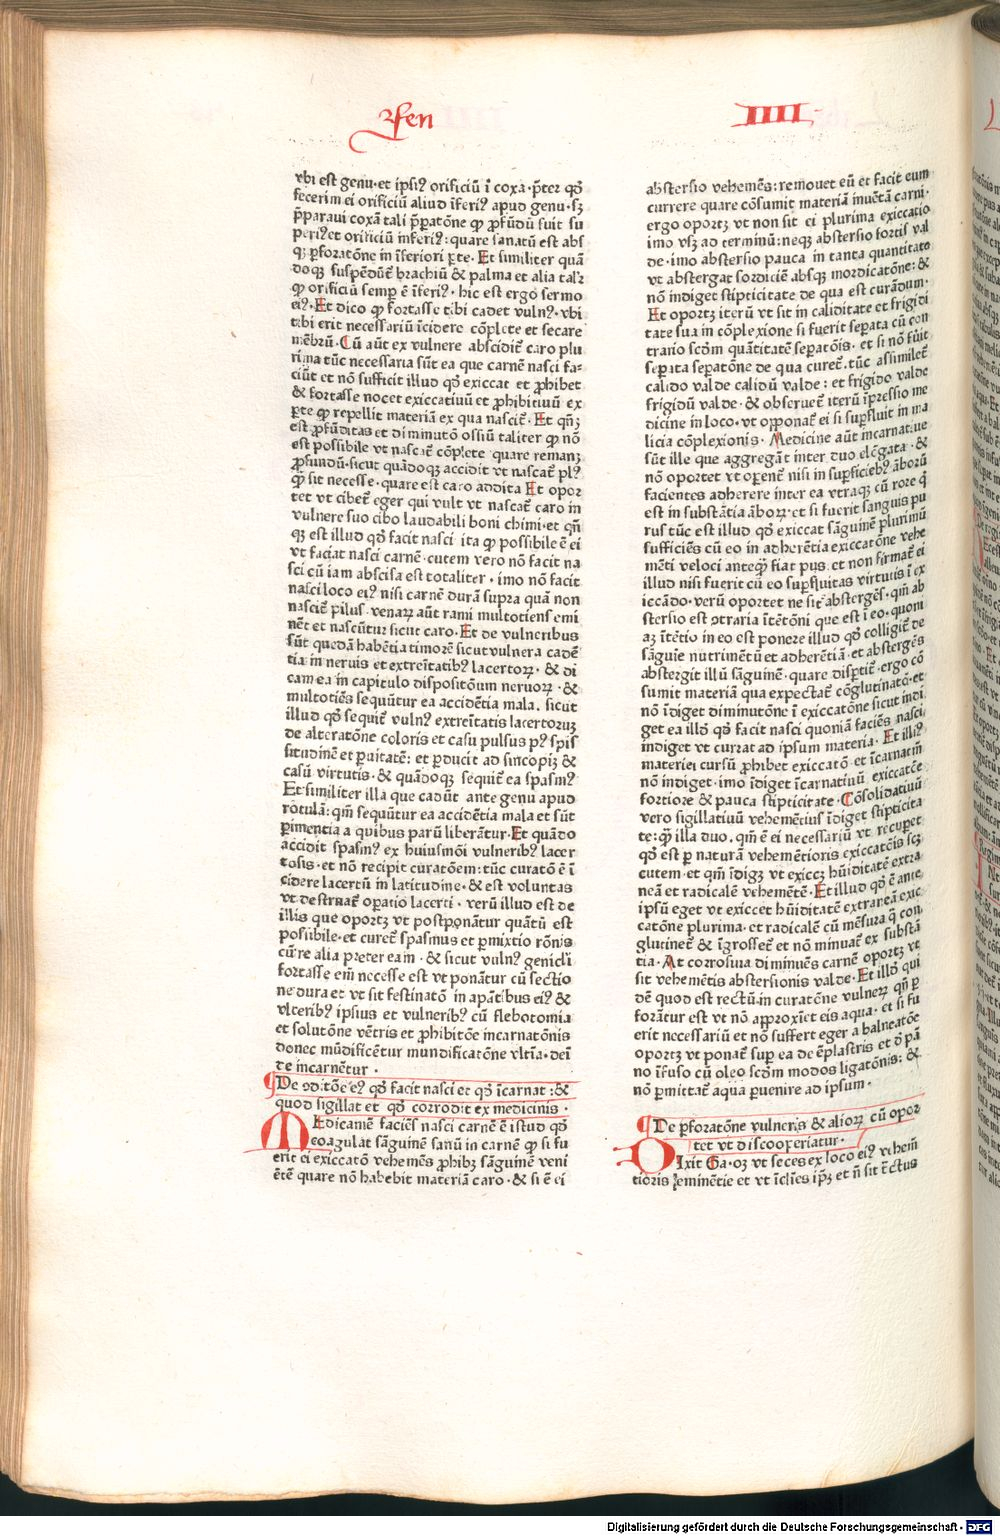 Fen
IIII
vbi est genu·et ipsiꝰ orificiũ ĩ coxa·p̃ter qđ
fecerim ei orificiũ aliud ĩferiꝰ apud genu·sꝫ
p̃paraui coxã tali p̃patõne ꝙ ꝓfũdũ fuit su
periꝰ et orificiũ inferiꝰ: quare sanatũ est abs
qꝫ ꝑforatõne in ĩferiori ꝑte· Et similiter quã
doqꝫ suspẽdũt̃ brachiũ & palma et alia talr̃
ꝙ orificiũ semꝑ ẽ ĩferiꝰ· hic est ergo sermo
eiꝰ· Et dico ꝙ fortasse tibi cadet vulnꝰ· vbi
tibi erit necessariũ ĩcidere cõplete et secare
mẽbrũ· Cũ aũt ex vulnere abscidit̃ caro plu
rima tũc necessaria sũt ea que carnẽ nasci fa-
ciũt et nõ sufficit illud qđ exiccat et ꝓhibet
& fortasse nocet exiccatiuũ et ꝓhibitiuũ ex
ꝑte ꝙ repellit materiã ex qua nascit̃· Et qñꝫ
est ꝓfũditas et diminutõ ossiũ taliter ꝙ nõ
est possibile vt nascat̃ cõplete quare remanꝫ
ꝓfundũ·sicut quãdoqꝫ accidit vt nascat̃ plꝰ
ꝙ̃ sit necesse·quare est caro addita Et opor
tet vt cibet̃ eger qui vult vt nascat̃ caro in
vulnere suo cibo laudabili boni chimi·et qñ
qꝫ est illud qđ facit nasci ita ꝙ possibile ẽ ei
vt faciat nasci carnẽ·cutem vero nõ facit na
sci cũ iam abscisa est totaliter· imo nõ facit
nasci loco eiꝰ nisi carnẽ durã supra quã non
nascit̃ pilus·venaꝝ aũt rami multotiens emi
nẽt et nascũtur sicut caro·Et de vulneribus
sũt quedã habẽtia timorẽ sicut vulnera cadẽ
tia in neruis et extreĩtatibꝰ lacertoꝝ· & di
cam ea in capitulo dispositõum neruoꝝ·&
multotiẽs sequũtur ea accidẽtia mala. sicut
illud qđ sequit̃ vulnꝰ extreĩtatis lacertorum
de alteratõne coloris et casu pulsus pꝰ spis
situdinẽ et ꝑuitatẽ: et ꝑducit ad sincopiꝫ &
casũ virtutis·& quãdoqꝫ sequit̃ ea spasmꝰ
Et similiter illa que cadũt ante genu apud
rotulã: qm̃ sequũtur ea accidẽtia mala et sũt
ꝑimentia a quibus parũ liberãtur·Et quãdo
accidit spasmꝰ ex huiusmõi vulneribꝰ lacer
tosis·et nõ recipit curatõem: tũc curatõ ẽ ĩ
cidere lacertũ in latitudine·& est voluntas
vt destruat̃ oꝑatio lacerti· verũ illud est de
illis que oportꝫ vt postponãtur quãtũ est
possibile·et curet̃ spasmus et ꝑmixtio rõnis
cũ re alia preter eam· & sicut vulnꝰ genicli
fortasse em̃ necesse est vt ponãtur cũ sectio
ne dura et vt sit festinatõ in apãtibus eiꝰ &
vlceribꝰ ipsius et vulneribꝰ cũ flebotomia
et solutõne vẽtris et ꝓhibitõe incarnatõnis
donec mũdificẽtur mundificatõne vltĩa·deĩ
de incarnẽtur·
De ꝯditõe eꝰ qđ facit nasci et qđ ĩcarnat:&
quod sigillat et qđ corrodit ex medicinis·
MEdicamẽ faciẽs nasci carnẽ ẽ istud qđ
coagulat sãguinẽ sanũ in carnẽ ꝙ si fu
erit ei exiccatõ vehemẽs ꝓhibꝫ sãguinẽ veni
ẽtẽ quare nõ habebit materiã caro·& si ẽ ei
abstersio vehemẽs: remouet eũ et facit eum
currere quare cõsumit materiã inuẽtã carni·
ergo oportꝫ vt non sit ei plurima exiccatio
imo vsqꝫ ad terminũ: neqꝫ abstersio fortis val
de·imo abstersio pauca in tanta quantitate
vt abstergat sordiciẽ absqꝫ mordicatõne: &
nõ indiget stipticitate de qua est curãdum·
Et oportꝫ iterũ vt sit in caliditate et frigidi
tate sua in cõplexione si fuerit seꝑata cũ con
trario scđm quãtitatẽ seꝑatõis· et si nõ fuit
seꝑata seꝑatõne de qua curet̃·tũc assimilet̃
calido valde calidũ valde: et frigido valde
frigidũ valde·& obseruet̃ iterũ ĩpressio me
dicine in loco·vt opponat̃ ei si suꝑfluit in ma
licia cõplexionis· Medicine aũt incarnatiue
sũt ille que aggregãt inter duo elõgata·&
nõ oportet vt oꝑent̃ nisi in suꝑficiebꝰ ãborũ
facientes adherere inter ea vtraqꝫ cũ rore qđ
est in substãtia ãboꝝ·et si fuerit sanguis pu
rus tũc est illud qđ exiccat sãguinẽ plurimũ
sufficiẽs cũ eo in adherẽtia exiccatõne vehe
mẽti veloci anteqꝙ̃ fiat pus·et non firmat̃ ei
illud nisi fuerit cũ eo suꝑfluitas virtutis ĩ ex
iccãdo·verũ oportet ne sit abstergẽs·qm̃ ab
stersio est ꝯtraria ĩtẽtõni que est ĩ eo·quoni
aꝫ ĩtẽtio in eo est ponere illud qđ colligit̃ de
sãguĩe nutrimẽtũ et adherẽtiã·et abstergẽs
abstergit illũ sãguinẽ·quare disꝑtit̃·ergo cõ
sumit materiã qua expectat̃ cõglutinatõ·et
nõ ĩdiget diminutõne ĩ exiccatõne sicut indi
get ea illđ qđ facit nasci quoniã faciẽs nasci
indiget vt currat ad ipsum materia· Et illiꝰ
materiei cursũ ꝓhibet exiccatõ·et ĩcarnatiuũ
nõ indiget·imo ĩdiget ĩcarnatiuũ exiccatõe
fortiore & pauca stipticitate·Cõsolidatiuũ
vero sigillatiuũ vehemẽtius ĩdiget stipticita
te: ꝙ̃ illa duo·qm̃ ẽ ei necessariũ vt recuꝑet
qđ est ꝑ naturã vehemẽtioris exiccatõis scꝫ
cutem·et qm̃ ĩdigꝫ vt exiccꝫ hũiditatẽ extra
neã et radicalẽ vehemẽtẽ·Et illud qđ ẽ ante
ipsũ eget vt exiccet hũiditatẽ extraneã exic
catõne plurima·et radicalẽ cũ mẽsura qđ con
glutinet̃ & ĩgrosset̃ et nõ minuat̃ ex substã
tia·At corrosiua diminuẽs carnẽ oportꝫ vt
sit vehemẽtis abstersionis valde·Et illđ qui
dẽ quod est rectũ in curatõne vulneꝝ qñ ꝑ
forãtur est vt nõ approxiẽt eis aqua·et si fu
erit necessariũ et nõ suffert eger a balneatõe
oportꝫ vt ponat̃ suꝑ ea de ẽplastris et đ pã
no ĩfuso cũ oleo scđm modos ligatõnis: &
nõ ꝑmittat̃ aqua ꝑuenire ad ipsum·
De ꝑforatõne vulneris & alioꝝ cũ opor
tet vt discooꝑiatur·
DIxit Ga·oꝫ vt feces ex loco eiꝰ vehem̃
tioris eminẽtie et vt ĩclĩes ip̃ꝫ et ñ sit ẽctus
Digitalisierung gefördert durch die Deutsche Forschungsgemeinschaft - DFG